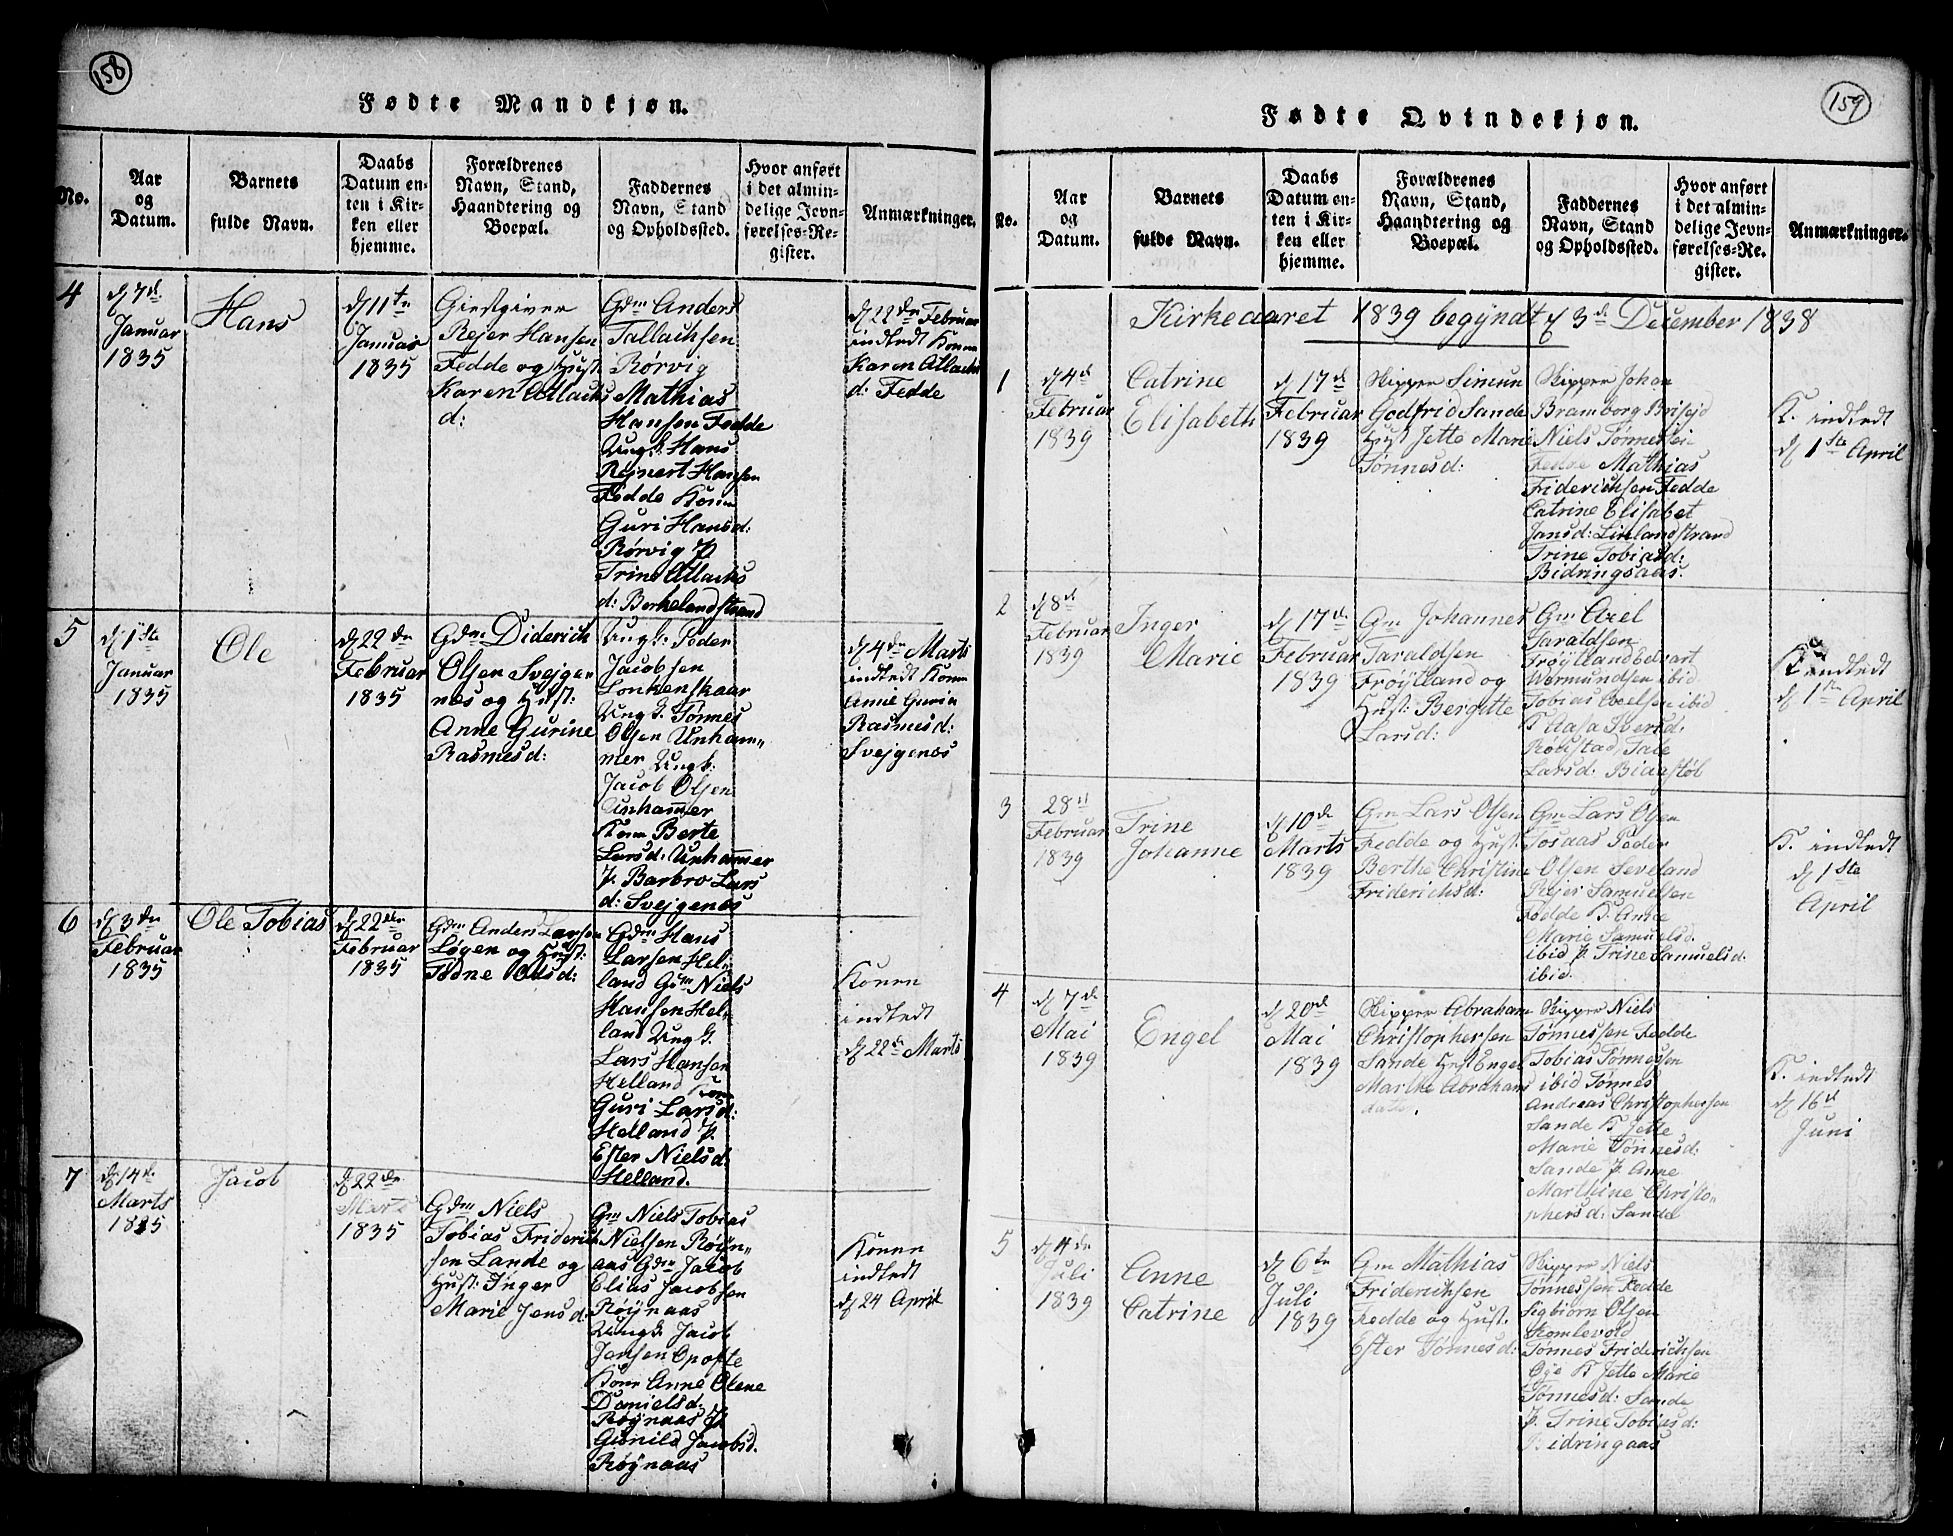 158
Fødte Mandkjøn.
No.
Aar
og
Datum.
Barnets
fulde Navn.
Daabs
Datum en-
ten i Kir-
ken eller
hjemme.
Forældrenes
Navn, Stand,
Haandtering og
Boepæl.
Faddernes
Navn, Stand
og Opholdssted.
Hvor anført
i det almin-
delige Jevn-
førelses-Re-
gister.
Anmærkninger.
4
d 7de
Januar
1835
Hans
d 11te
Januar
1835
Giestgiver
Rejer Hansen
Fedde og Hust:
Karen Atlachs
d:
Gdm Anders
Tallachsen
Rørvig
Mathias
Hansen Fedde
Ungk. Hans
Reinert Hansen
Fedde Kone
Guri Hansd:
Rørvig P.
Trine Atlachs
d: Berkelandstrand
d 22de Februar
indledt Konen
Karen Atlachs
d: Fedde
5
d 1ste
Januar
1835
Ole
d 22de
Februar
1835
Gdm Diderich
Olsen Svejge-
nes og Hust:
Anne Gurine
Rasmesd:
Ungk: Peder
Jacobsen
Lonkenskaar
Ungk. Tønnes
Olsen Unham-
mer Ungk:
Jacob Olsen
Unhammer
Kone Berte
Larsd: Unhammer
P. Barbro Lars
d: Svejgenes
d 4de Marts
indledt Konen
Anne Gurine
Rasmesd:
Svejgenes
6
d 3de
Februar
1835
Ole Tobias
d 22de
Februar
1835
Gdm Anders Larsen
Løgen og Hust:
Tødne Olsd:
Gdm Hans
Larsen Hel-
land Gdm Niels
Hansen Hel-
land Ungk.
Lars Hansen
Helland Kone
Guri Larsd:
Helland P.
Ester Nielsd:
Helland.
Konen
indledt
d 22de Marts
7
d 14de
Marts
1835
Jacob
d 22de
Marts
1835
Gdm Niels
Tobias Friderich
sen Lande og
Hust: Inger
Marie Jensd:
Gm Niels Tobias
Nielsen Røyn-
aas Gdm Jacob
Elias Jacobsen
Røynaas
Ungk. Jacob
Jansen Opofte
Kone Anne Olene
Danielsd.
Røynaas P.
Gunild Jacobsd.
Røynaas
Konen
indledt
d 24 April
159
Fødte Qvindekjøn.
No.
Aar
og
Datum.
Barnets
fulde Navn.
Daabs
Datum en-
ten i Kir-
ken eller
hjemme.
Forældrenes
Navn, Stand,
Haandtering og
Boepæl.
Faddernes
Navn, Stand
og Opholdssted.
Hvor anført
i det almin-
delige Jevn-
førelses-Re-
gister.
Anmærkninger.
Kirkeaaret 1839 begyndt d 3de December 1838
1
d 4de
Februar
1839
Catrine
Elisabeth
d 17de
Februar
1839
Skipper Simun
Godfrid Sande
Hust Jette Marie
Tønnesd:
Skipper Johan
Bramborg
Niels Tønnessen
Fedde Mathias
Friderichsen Fedde
Catrine Elisabet
Jansd: Linlandstrand
Trine Tobiasd:
Bidringsaas.
K. indledt
d 1ste April
2
d 8de
Februar
1839
Inger
Marie
d 17de
Februar
1839
Gm Johannes
Taraldsen
Frøylland og
Hust: Bergitte
Larsd:
Gm Axel
Taraldsen
Frøylland Edvart
Wermundsen ibid
Tobias Axelsen ibid
K Stasa Iversd.
Røbstad Tale
Larsd: Biaastøl
K. indledt
d 1ste April
3
28de
Februar
1839
Trine
Johanne
d 10de
Marts
1839
Gm Lars Olsen
Fedde og Hust.
Berthe Christine
Friderichsd:
Gm Lars Olsen
Tosaas Peder
Olsen Seveland
Rejer Samuelsen
Fedde K. Anne
Marie Samuelsd.
ibid P. Trine Samuelsd:
ibid.
K. indledt
d 1ste
April
4
d 7de
Mai
1839
Engel
d 20de
Mai
1839
Skipper Abraham
Christophersen
Sande Hust Engel
Marthe Abrahams
datter.
Skipper Niels
Tønnessen Fedde
Tobias Tønnessen
ibid Tønnes
Andreas Christophersen
Sande K Jette
Marie Tønnesd:
Sande P. Anne
Marthine Christo-
phersd: Sande
K. indledt
d 16de
Juni
5
d 4de
Juli
1839
Anne
Catrine
d 6te
Juli
1839
Gm Mathias
Friderichsen
Fedde og Hust.
Ester Tønnesd:
Skipper Niels
Tønnessen Fedde
Sigbiørn Olsen
Komlevold
Tønnes Friderichsen
Øye K Jette Marie
Tønnesd: Sande
P. Trine Tobiasd:
Bidringaas